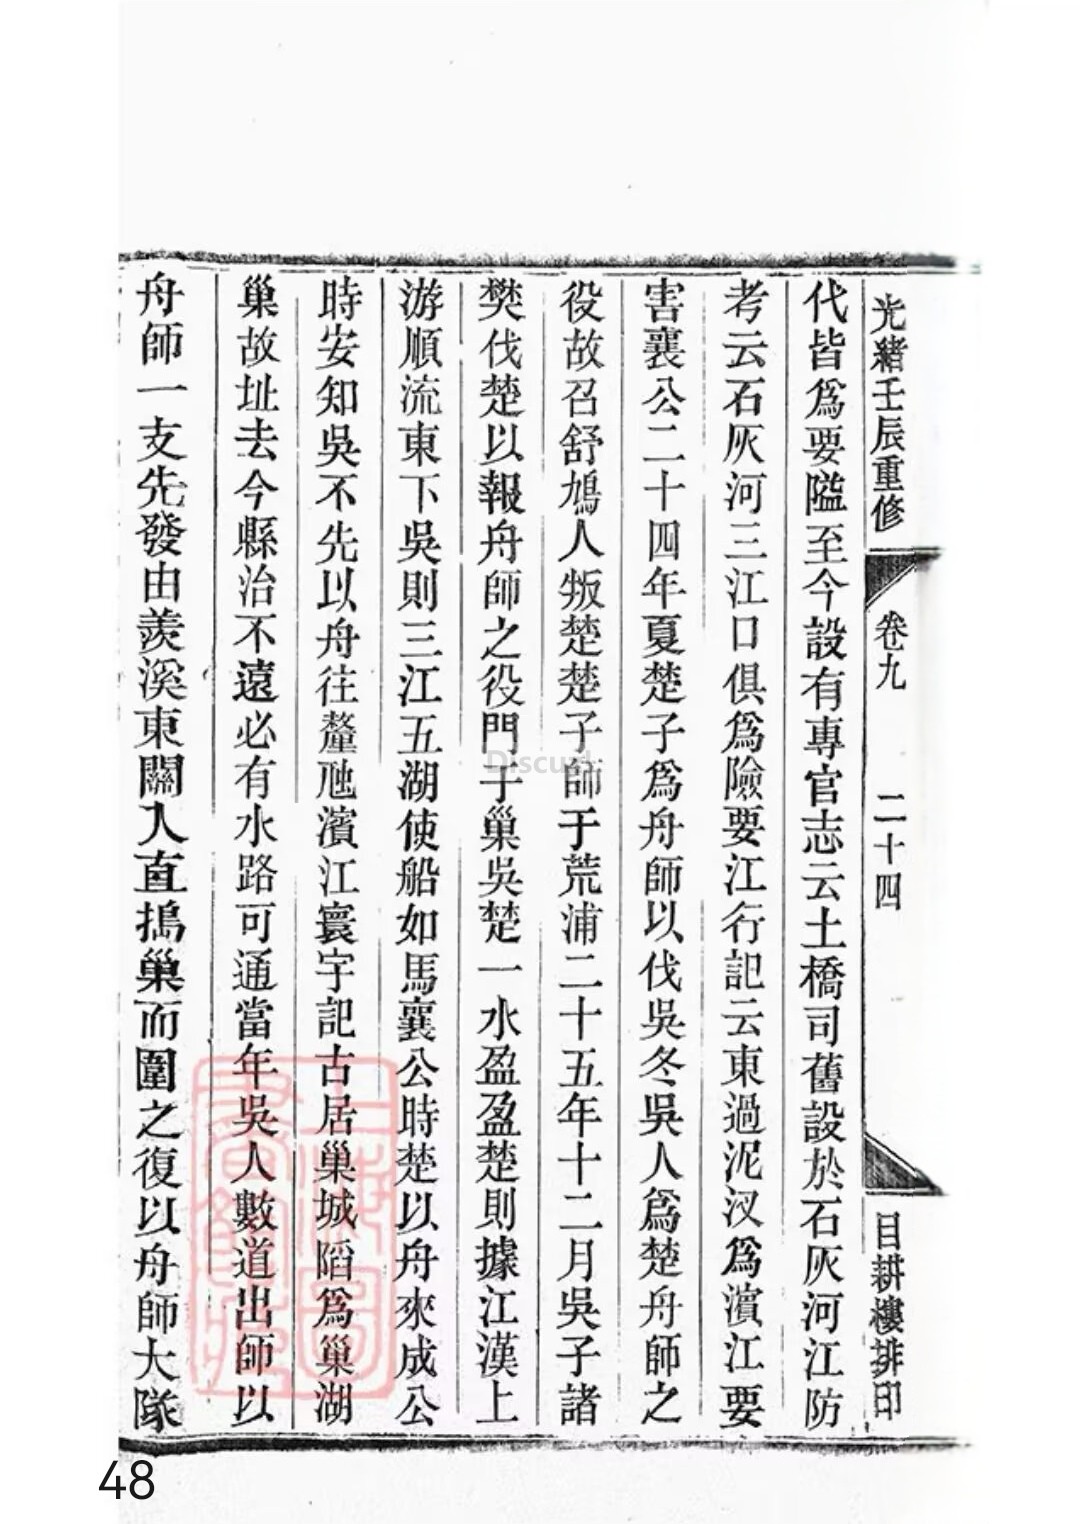 光緒壬辰重修
卷九
二十四
目耕樓排印
代皆爲要隘至今設有專官志云土橋司舊設於石灰河江防
考云石灰河三江口俱爲險要江行記云東過泥汊爲濵江要
害襄公二十四年夏楚子爲舟師以伐吳冬吳人爲楚舟師之
役故召舒鳩人叛楚楚子師于荒浦二十五年十二月吳子諸
樊伐楚以報舟師之役門于巢吳楚一水盈盈楚則據江漢上
游順流東下吳則三江五湖使船如馬襄公時楚以舟來成公
時安知吳不先以舟往釐虺濱江寰宇記古居巢城陷爲巢湖
巢故址去今縣治不遠必有水路可通當年吳人數道出師以
舟師一支先發由羨溪東關入直搗巢而圍之復以舟師大隊
48